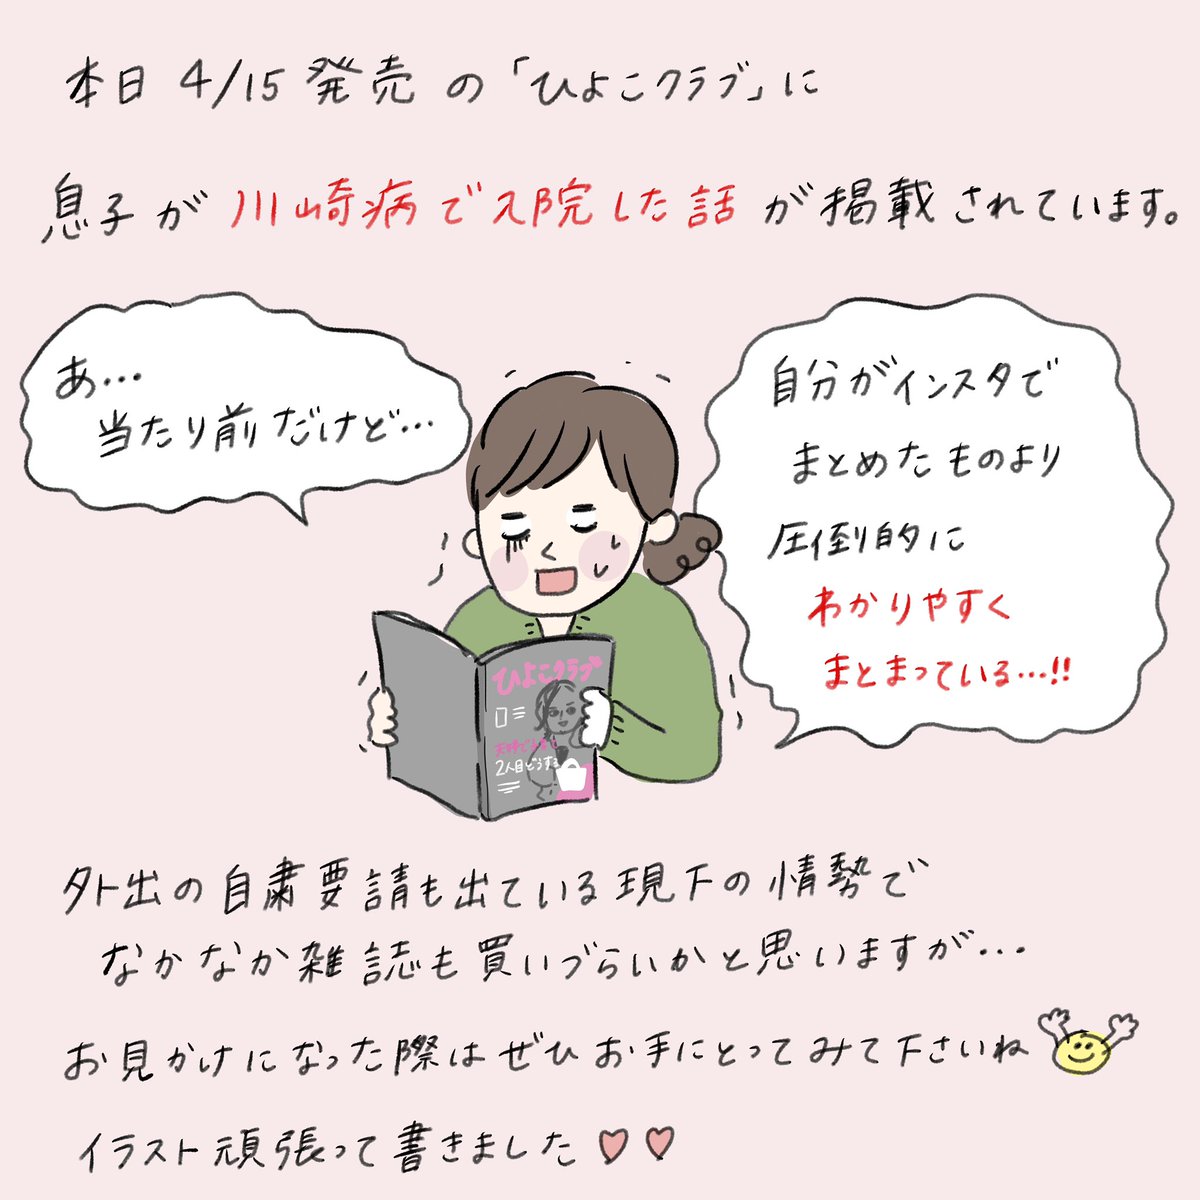 本日 4/15 発売 の「ひよこクラブ」に
息子が 川崎病で入院した話 が掲載されています。
あ…
当たり前だけど…
自分がインスタで
まとめたものより
圧倒的に
わかりやすく
まとまっている…!!
ひよこクラブ
2人目どうする
外出の自粛要請も出ている現下の情勢で
なかなか雑誌も買いづらいかと思いますが…
お見かけになった際はぜひお手にとってみて下さいね
イラスト頑張って書きました♡♡